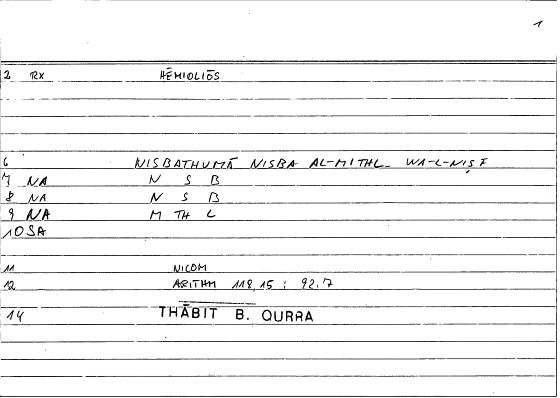 1
2 RX HĒMIOLIŌS
6 NISBATHUMĀ NISBA AL-MITHL WA-L-NIṢF
7 NA N S B
8 NA N S B
9 NA M TH L
10 SA
11 NICOM
12 ARITHM 118,15 : 92,7
14 THĀBIT B. QURRA